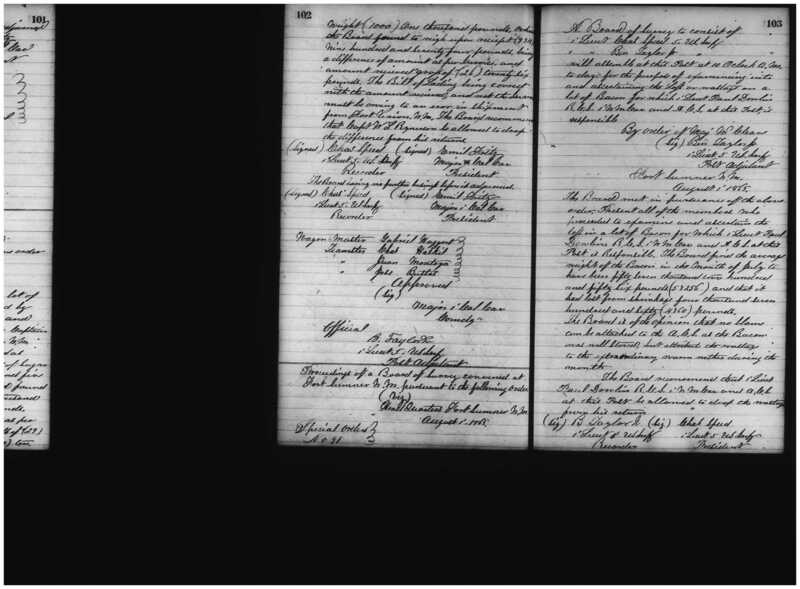 101
102
weight (1000) One thousand pounds,
the Board found to weigh upon receipt (974)
Nine hundred and seventy four pounds, being
a difference of amount as per Invoice, and
amount received gross of (26) twenty six
pounds. The Bill of Lading being correct
with the amount received, and not the Invoice
must be owing to an error in shipment
from Fort Union, N.M. The Board recommend
that Capt W. L. Rynerson be allowed to drop
the difference from his returns
(signed) Chas Speed (signed) Emil Fritz
1 Lieut 5 US Inf Major 1 Cal Cav
Recorder President
The Board having no further business before it adjourned
(signed) Chas Speed (signed) Emil Fritz
1 Lieut 5 US Inf Major 1 Cal Cav
Recorder President
Wagon Master Gabriel
Teamster Chas
" Juan Montoya
" Jose
Approved
(Sig)
Major 1 Cal Cav
Comdg
Official
B. Taylor Jr
1 Lieut 5 US Inf
Post Adjutant
Proceedings of a Board of Survey convened at
Fort Sumner N M pursuant to the following order
(Viz)
Head Quarters Fort Sumner N M
August 1 1865
Special Orders
No 91
103
A Board of Survey to consist of
1 Lieut Chas Speed 5 US Inf
" " Ben Taylor Jr "
will assemble at this Post at 10 O'clock A.M.
to day for the purpose of examining into
and ascertaining the loss or wastage on a
lot of Bacon for which 1 Lieut Paul Dowlin
R.Q.M. 1 N M Cav and A.C.S. at this Post, is
responsible
By order of Maj
(Sig) Ben Taylor Jr
1 Lieut 5 US Inf
Post Adjutant
Fort Sumner N.M.
August 1 1865.
The Board met in pursuance of the above
order. Present all of the members. Who
proceeded to examine and ascertain the
loss in a lot of Bacon for which 1 Lieut Paul
Dowlin R.Q.M. 1 N M Cav and A.C.S. at this
Post is Responsible. The Board finds the average
weight of the Bacon in the Month of July to
have been fifty seven thousand two hundred
and fifty six pounds (57256) and that it
has lost from shrinkage four thousand seven
hundred and sixty (4760) pounds.
The Board is of the opinion that no blame
can be attached to the A.C.S. as the Bacon
was well stored, but attribute the wastage
to the extraordinary warm weather during the
month
The Board recommend that 1 Lieut
Paul Dowlin R.Q.M. 1 N M Cav and A.C.S.
at this Post be allowed to drop the wastage
from his returns
(Sig) B Taylor Jr (Sig) Chas Speed
1 Lieut 5 US Inf 1 Lieut 5 US Inf
Recorder President